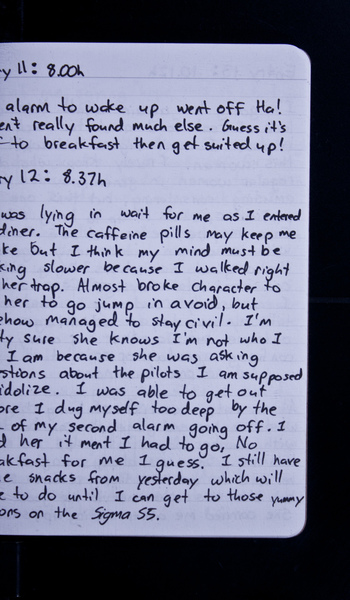 ry 11: 8.00h
alarm to wake up went off Ha!
en't really found much else. Guess it's
to breakfast then get suited up!
ry 12: 8.37h
was lying in wait for me as I entered
diner. The caffeine pills may keep me
ke but I think my mind must be
king slower because I walked right
her trap. Almost broke character to
her to go jump in a void, but
ehow managed to stay civil. I'm
ty sure she knows I'm not who I
I am because she was asking
stions about the pilots I am supposed
idolize. I was able to get out
ore I dug myself too deep by the
of my second alarm going off. I
d her it ment I had to go. No
akfast for me I guess. I still have
e snacks from yesterday which will
e to do until I can get to those yummy
ons on the Sigma S5.